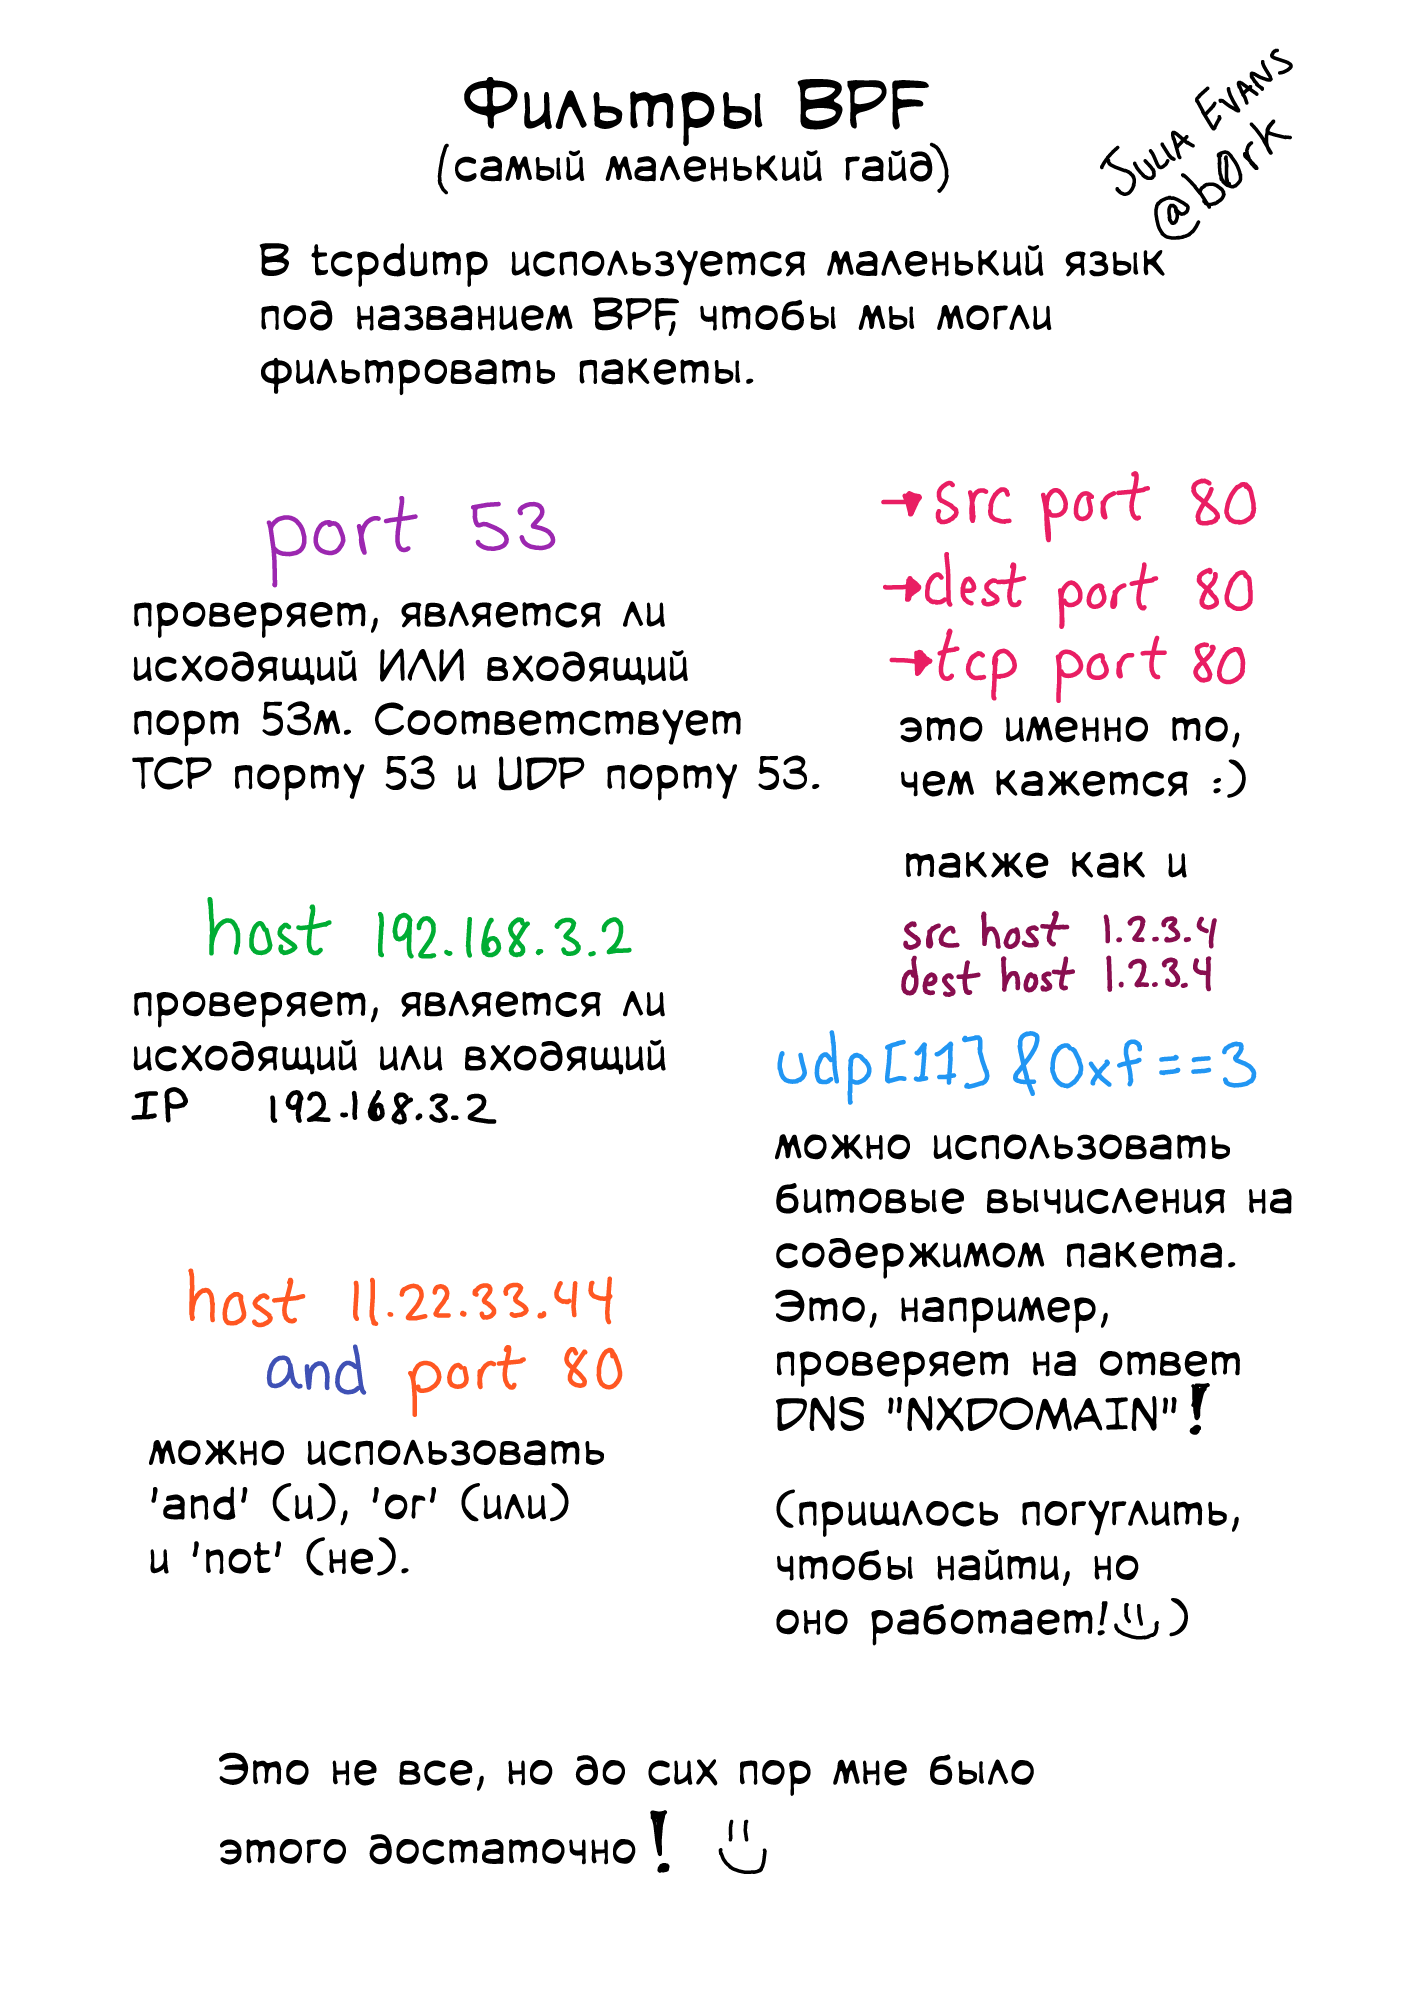 Фильтры BPF
(самый маленький гайд)
JULIA EVANS
@b0rk
В tcpdump используется маленький язык
под названием BPF, чтобы мы могли
фильтровать пакеты.
port 53
проверяет, является ли
исходящий ИЛИ входящий
порт 53м. Соответствует
TCP порту 53 и UDP порту 53.
host 192.168.3.2
проверяет, является ли
исходящий или входящий
IP 192.168.3.2
host 11.22.33.44
and port 80
можно использовать
'and' (и), 'or' (или)
и 'not' (не).
→src port 80
→dest port 80
→tcp port 80
это именно то,
чем кажется :)
также как и
src host 1.2.3.4
dest host 1.2.3.4
udp[11]&0xf==3
можно использовать
битовые вычисления на
содержимом пакета.
Это, например,
проверяет на ответ
DNS "NXDOMAIN"!
(пришлось погуглить,
чтобы найти, но
оно работает! )
Это не все, но до сих пор мне было
этого достаточно!